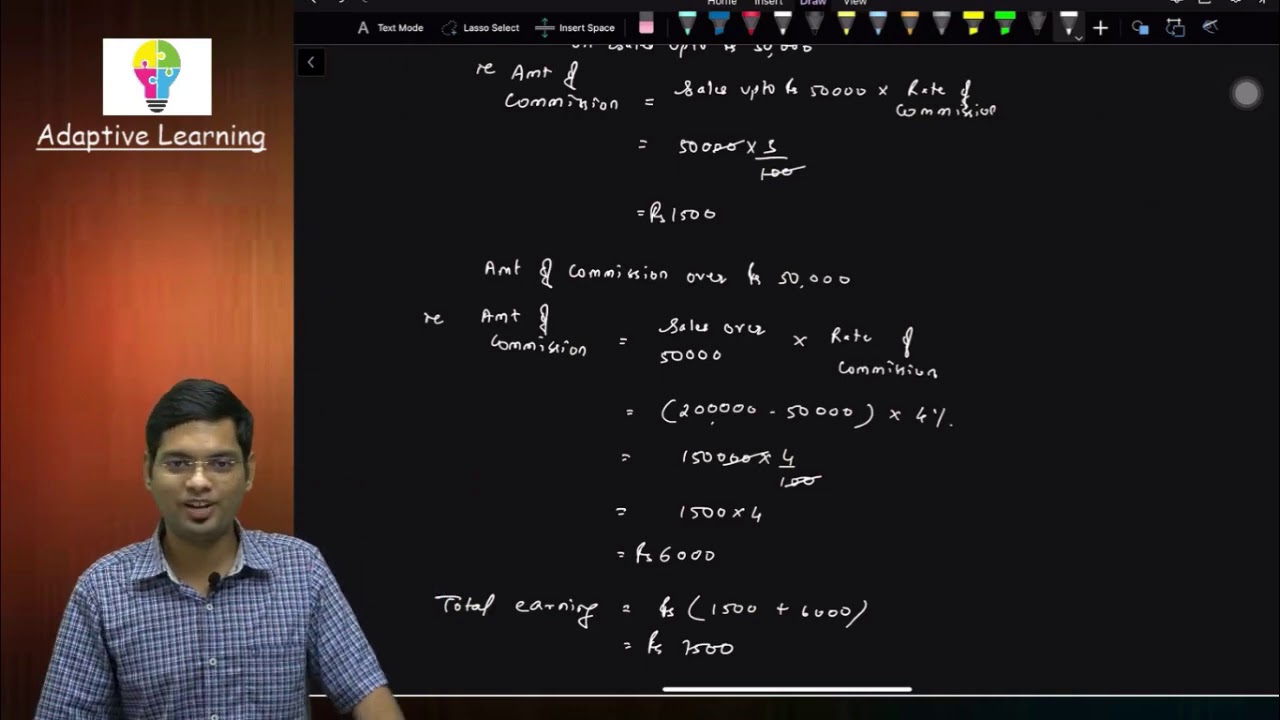 Home Insert Draw View
Text Mode Lasso Select Insert Space
Adaptive Learning
upto Rs 50,000
ie Amt of Commission = Sales upto Rs 50000 × Rate of Commission
= 50000 × 3/100
= Rs 1500
Amt of Commission over Rs 50,000
ie Amt of Commission = Sales over 50000 × Rate of Commission
= (200000 - 50000) × 4%.
= 150000 × 4/100
= 1500 × 4
= Rs 6000
Total earning = Rs (1500 + 6000)
= Rs 7500